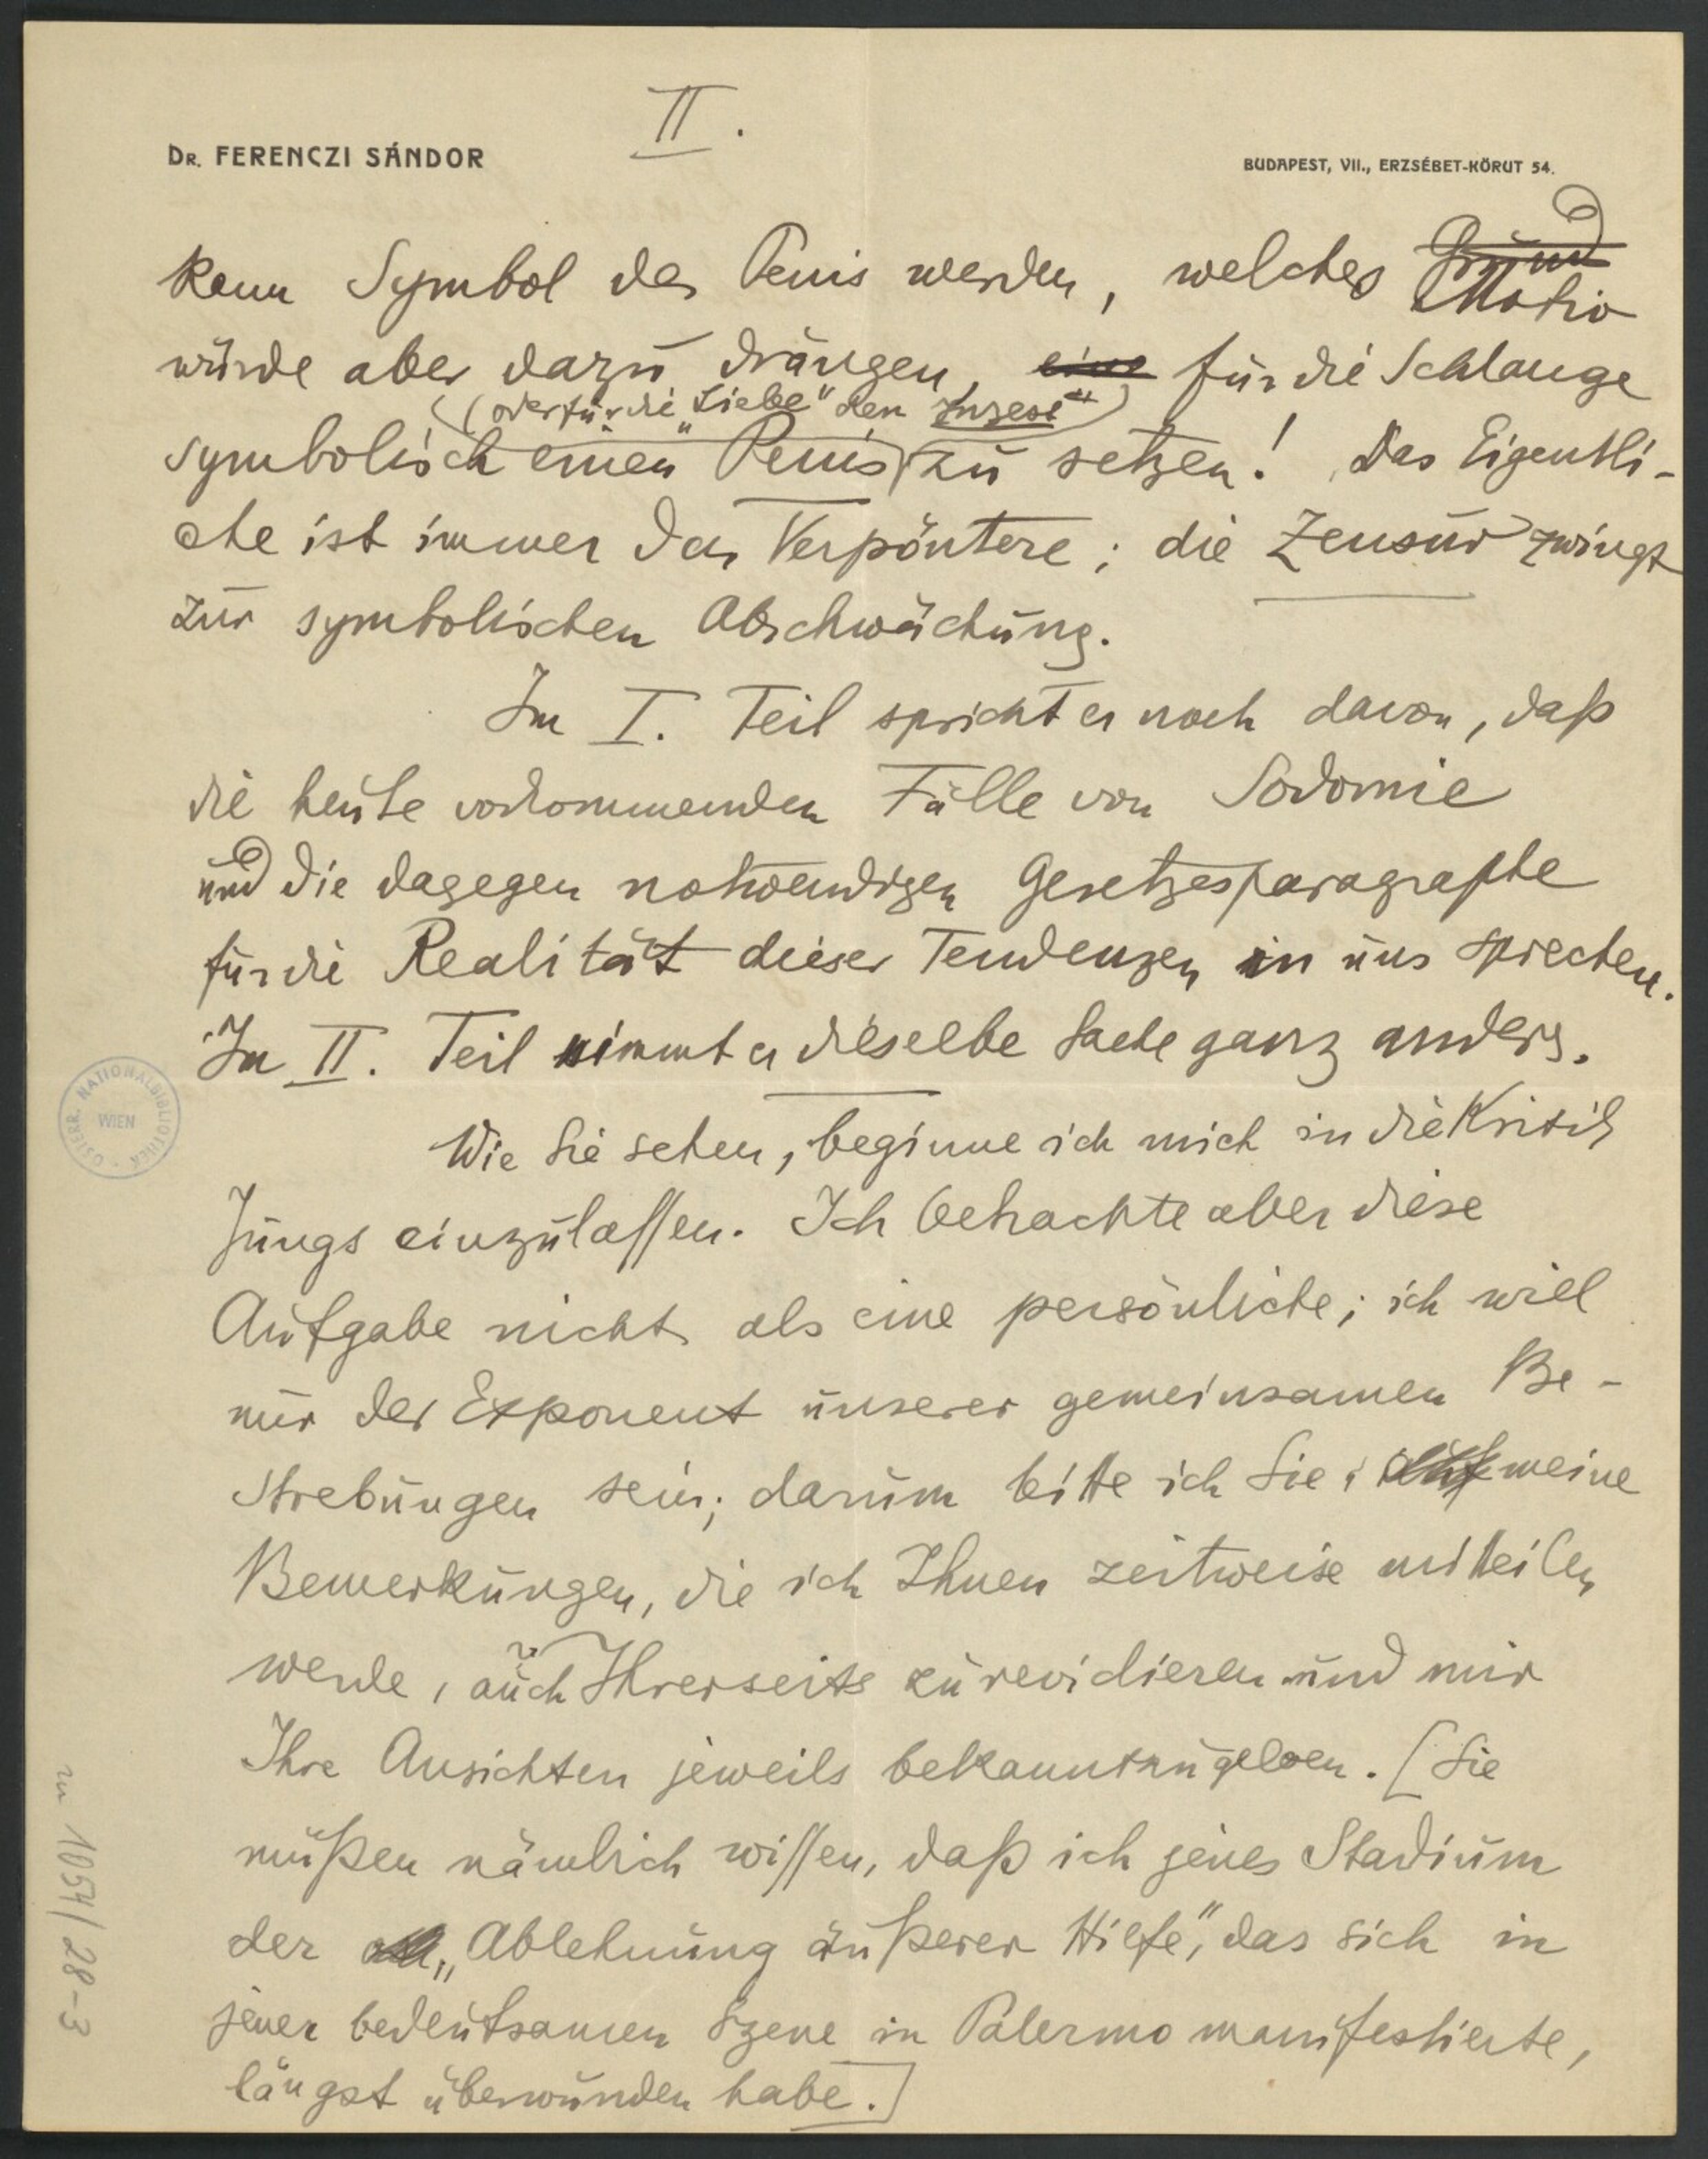 II.
DR. FERENCZI SÁNDOR
BUDAPEST, VII., ERZSÉBET-KÖRUT 54.
kann Symbol des Penis werden, welches Grund Motiv
würde aber dazu drängen, eine für die Schlange
(oder für die „Liebe" den Inzest)
symbolisch einen Penis zu setzen! Das Eigentli-
che ist immer das Verpöntere; die Zensur zwingt
zur symbolischen Abschwächung.
Im I. Teil spricht er noch davon, daß
die heute vorkommenden Fälle von Sodomie
und die dagegen notwendigen Gesetzesparagraphe
für die Realität dieser Tendenzen in uns sprechen.
Im II. Teil nimmt er dieselbe Sache ganz anders.
Wie Sie sehen, beginne ich mich in die Kritik
Jungs einzulassen. Ich betrachte aber diese
Aufgabe nicht als eine persönliche; ich will
nur der Exponent unserer gemeinsamen Be-
strebungen sein; darum bitte ich Sie, auf meine
Bemerkungen, die ich Ihnen zeitweise mitteilen
werde, auch Ihrerseits zu revidieren und mir
Ihre Ansichten jeweils bekanntzugeben. [Sie
müßen nämlich wissen, daß ich jenes Stadium
der „Ablehnung äußerer Hilfe", das sich in
jener bedeutsamen Szene in Palermo manifestierte,
längst überwunden habe.]
ÖSTERR. NATIONALBIBLIOTHEK WIEN
zu 1054/28-3